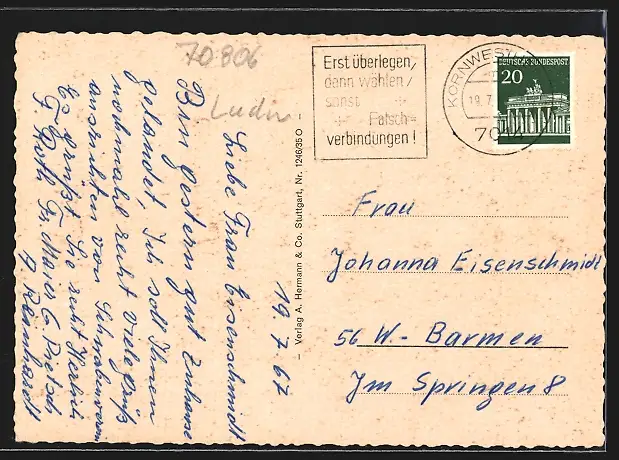 70806
Ludw
Erst überlegen,
dann wählen,
sonst
Falsch-
verbindungen!
KORNWESTHEIM
19.7.
7014
DEUTSCHE BUNDESPOST
20
19.7.67
Liebe Frau Eisenschmidt.
Bin gestern gut Zuhause
gelandet Ich soll Ihnen
nochmals recht viele Grüß
ausrichten von Schwabenverein
Es grüßt Sie recht Herzlich
F. Roth Fr. Maier
A. Reinhardt
– Verlag A. Hermann & Co. Stuttgart, Nr. 1246/35 O –
Frau
Johanna Eisenschmidt
56 W.- Barmen
Im Springen 8